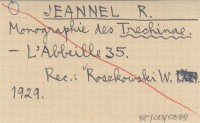 JEANNEL R.
Monographie des Trechinae.
— L'Abbeille 35.
Rec.: Roszkowski W.
1929.